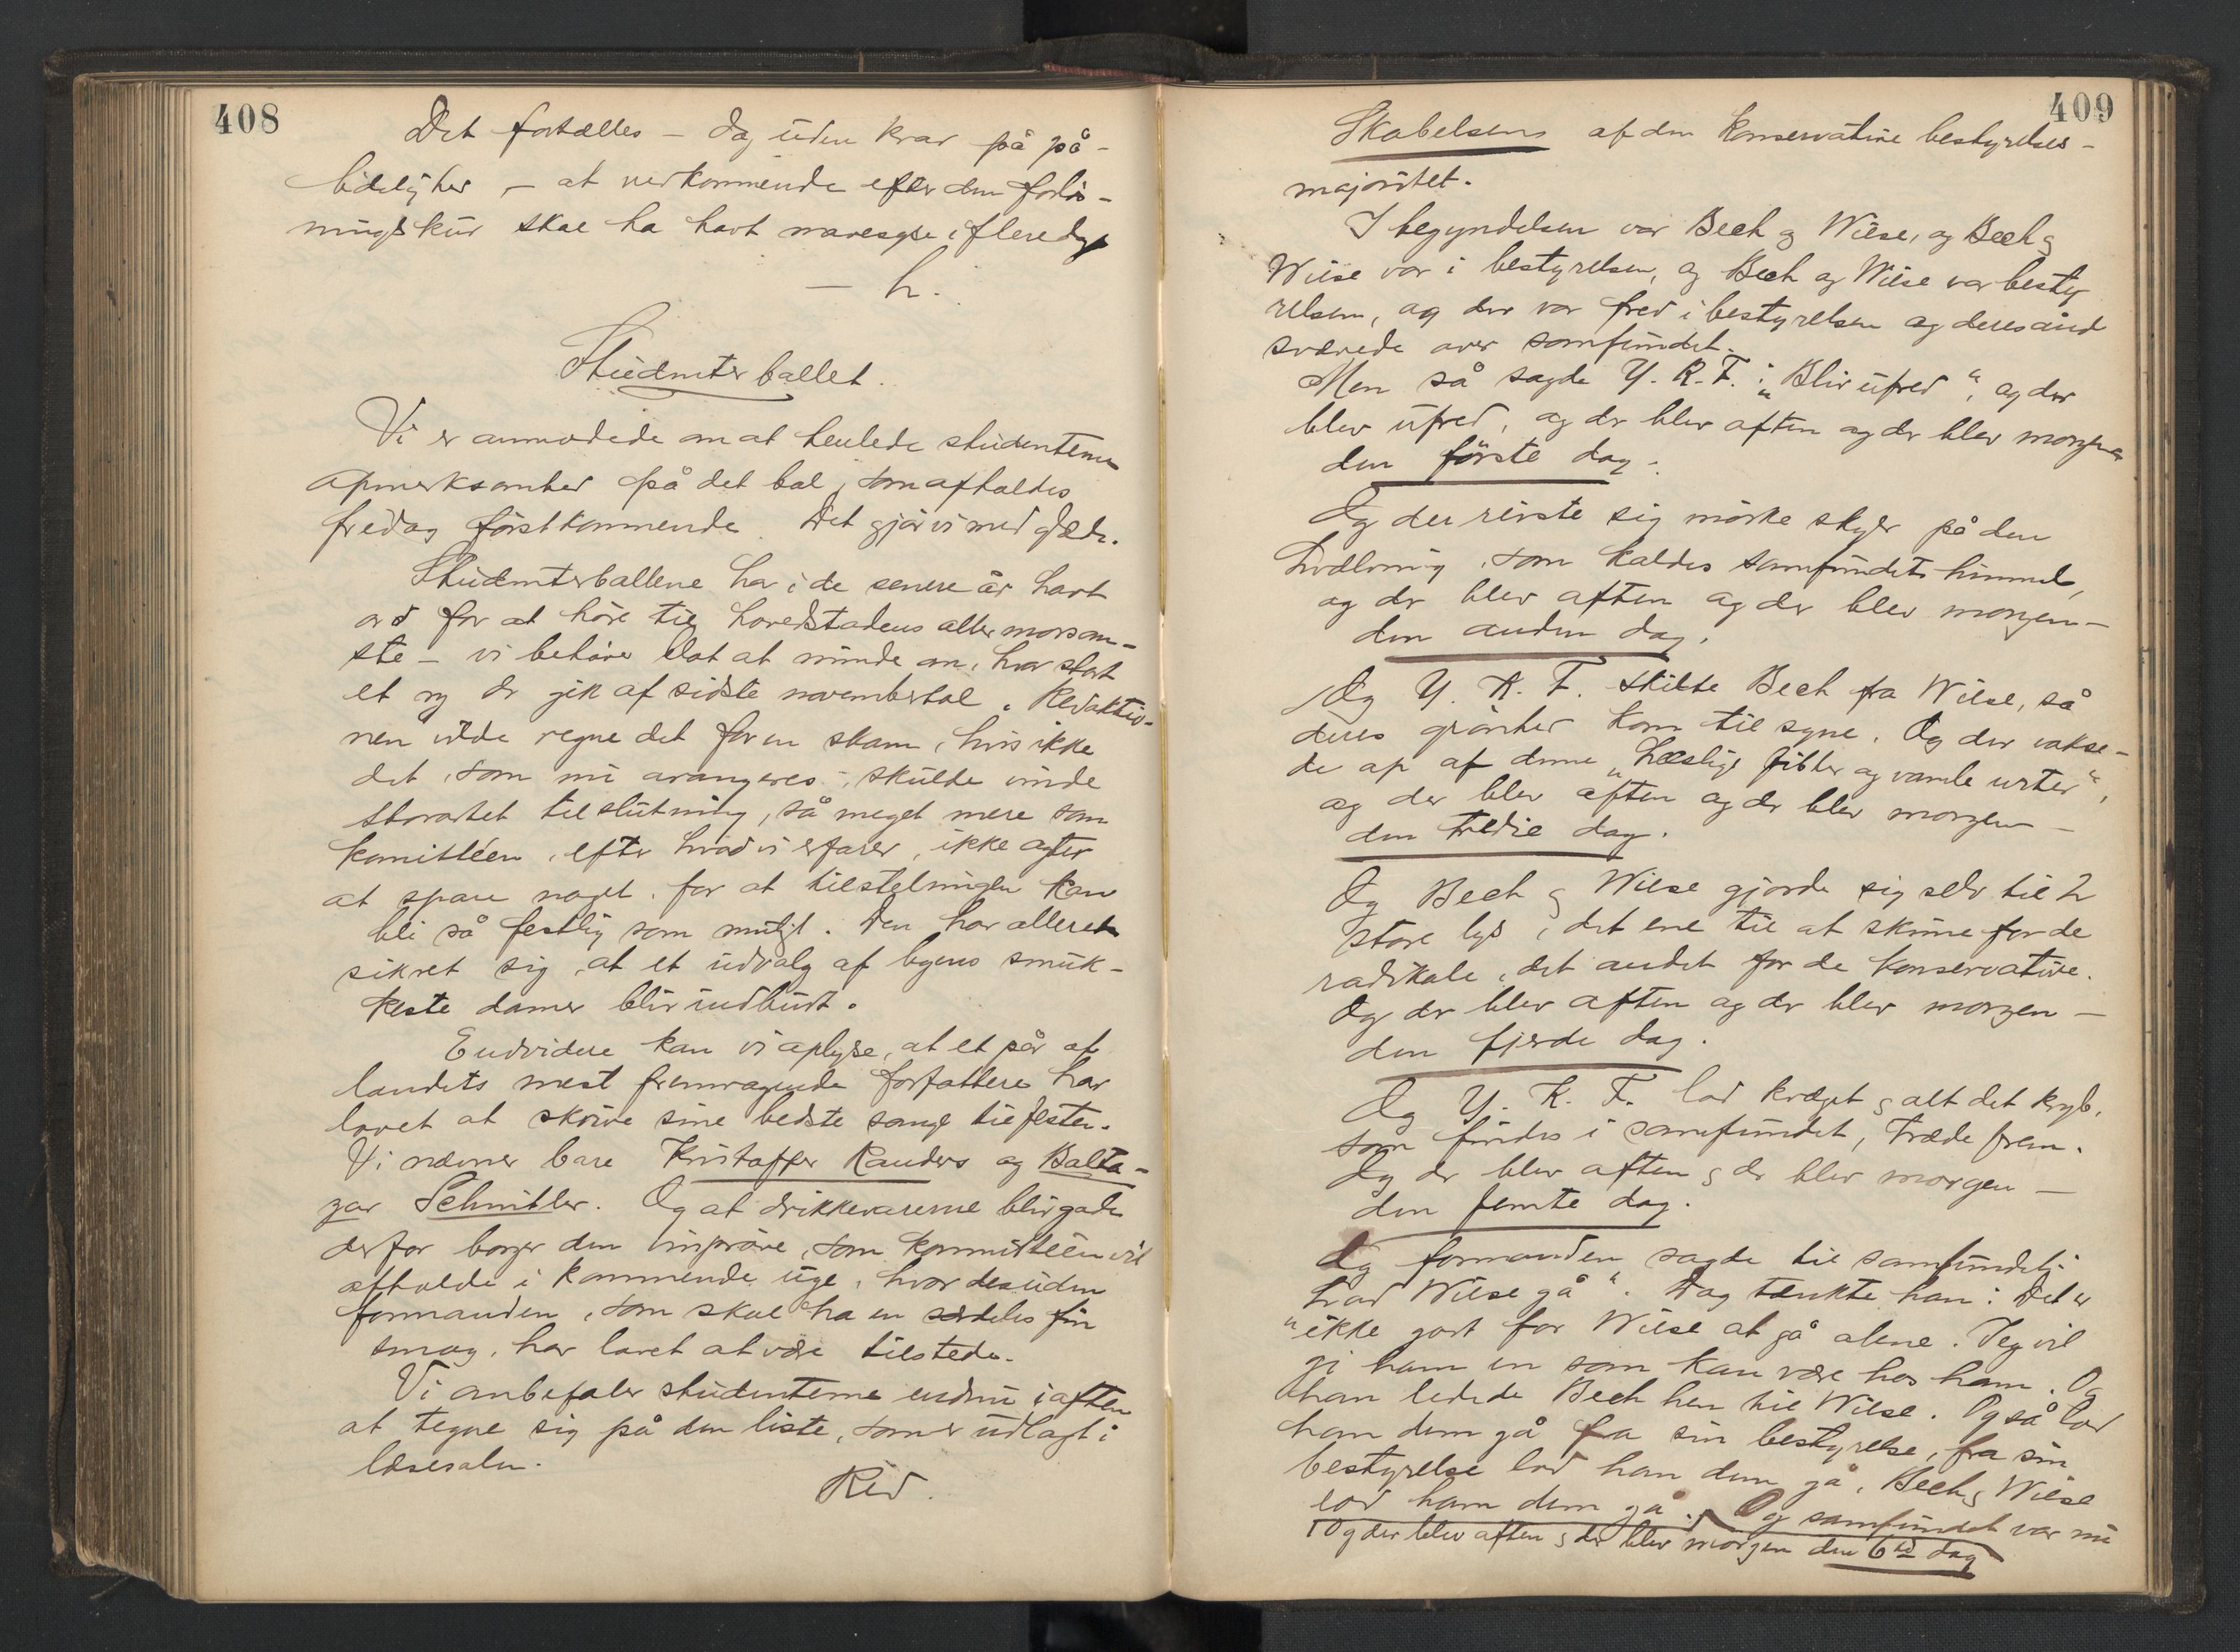 408
Det fortælles – dog uden krav på på-
lidelighed, – at vedkommende efter den
skal ha havt mavesyge i flere dage
– h.
Studenterballet.
Vi er anmodede om at henlede studenternes
opmerksomhed på det bal, som afholdes
fredag førstkommende. Det gjør vi med glæde.
Studenterballene har i de senere år havt
ord for at høre til hovedstadens aller morsom-
ste – vi behøver blot at minde om, hvor
et ry der gik af sidste novemberbal. Redaktio-
nen vilde regne det for en skam, hvis ikke
det, som nu arangeres, skulde vinde
storartet tilslutning, så meget mere som
komitéen, efter hvad vi erfarer, ikke agter
at spare noget, for at tilstelningen kan
bli så festlig som muligt. Den har allerede
sikret sig, at et udvalg af byens smuk-
keste damer blir indbudt.
Endvidere kan vi oplyse, at et par af
landets mest fremragende forfattere har
lovet at skrive sine bedste sange til festen.
Vi nævner bare Kristoffer Randers og Balta-
zar Schnitler. Og at drikkevarerne blir gode
derfor borger den vinprøve, som kommitéen vil
afholde i kommende uge, hvor desuden
formanden, som skal ha en særdeles fin
smag, har lovet at være tilstede.
Vi anbefaler studenterne endnu i aften
at tegne sig på den liste, som er udlagt i
læsesalen.
Red.
409
Skabelsen af den konservative bestyrelses-
majoritet.
I begyndelsen var Bech og Wiese, og Bech og
Wiese var i bestyrelsen, og Bech og Wiese var besty
relsen, og der var fred i bestyrelsen og deres ånd
svævede over samfundet.
Men så sagde Y. K. F.: „Bliv ufred“, og der
blev ufred, og der blev aften og der blev morgen
den første dag.
Og der reiste sig mørke skyer på den
hvælving, som kaldes samfundets himmel,
og der blev aften og der blev morgen –
den anden dag.
Og Y. K. F. skilte Bech fra Wiese, så
deres grønhed kom til syne. Og der vokse-
de op af denne „hæslige fibler og vamle urter“,
og der blev aften og der blev morgen –
den tredie dag.
Og Bech og Wiese gjorde sig selv til 2
store lys, det ene til at skinne for de
radikale, det andet for de konservative.
Og der blev aften og der blev morgen –
den fjerde dag.
Og Y. K. F. lod kvæget og alt det kryb,
som findes i samfundet, træde frem.
Og der blev aften og der blev morgen –
den femte dag.
Og formanden sagde til samfundet:
„Lad Wiese gå“. Dog tænkte han: Det er
ikke godt for Wiese at gå alene. Jeg vil
gi ham en som kan være hos ham. Og
han ledede Bech hen til Wiese. Og så lod
han dem gå fra sin bestyrelse, fra sin
bestyrelse lod han dem gå, Bech og Wiese
lod ham dem gå. Og samfundet var nu
Og der blev aften og der blev morgen den 6te dag